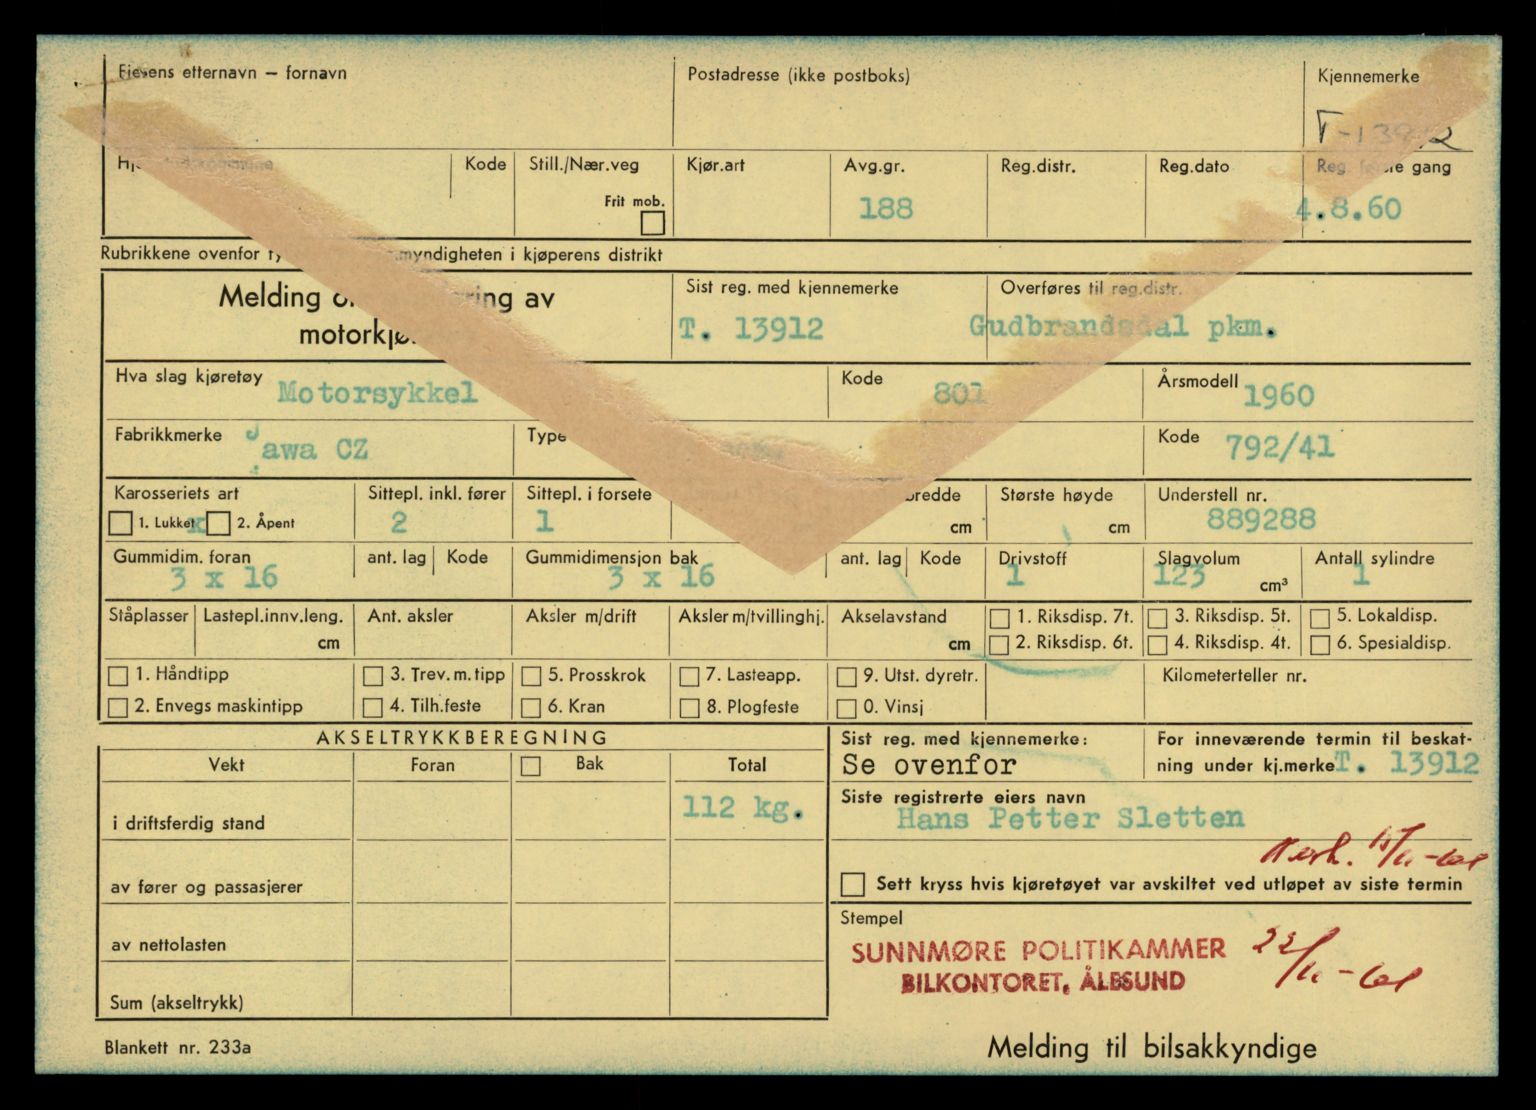 Eierens etternavn – fornavn
Postadresse (ikke postboks)
Kjennemerke
T-13912
Kode
Still./Nær.veg
Frit mob.
Kjør.art
Avg.gr.
188
Reg.distr.
Reg.dato
Reg. første gang
4.8.60
Rubrikkene ovenfor myndigheten i kjøperens distrikt
Melding av
Sist reg. med kjennemerke
T. 13912
Overføres til reg.distr.
Gudbrandsdal pkm.
Hva slag kjøretøy
Motorsykkel
Kode
801
Årsmodell
1960
Fabrikkmerke
Jawa CZ
Type
Kode
792/41
Karosseriets art
1. Lukket x 2. Åpent
Sittepl. inkl. fører
2
Sittepl. i forsete
1
bredde
cm
Største høyde
cm
Understell nr.
889288
Gummidim. foran
3 x 16
ant. lag
Kode
Gummidimensjon bak
3 x 16
ant. lag
Kode
Drivstoff
1
Slagvolum
123 cm³
Antall sylindre
1
Ståplasser
Lastepl.innv.leng.
cm
Ant. aksler
Aksler m/drift
Aksler m/tvillinghj.
Akselavstand
cm
1. Riksdisp. 7t.
2. Riksdisp. 6t.
3. Riksdisp. 5t.
4. Riksdisp. 4t.
5. Lokaldisp.
6. Spesialdisp.
1. Håndtipp
2. Envegs maskintipp
3. Trev. m. tipp
4. Tilh.feste
5. Prosskrok
6. Kran
7. Lasteapp.
8. Plogfeste
9. Utst. dyretr.
0. Vinsj
Kilometerteller nr.
AKSELTRYKKBEREGNING
Vekt
Foran
Bak
Total
i driftsferdig stand
112 kg.
av fører og passasjerer
av nettolasten
Sum (akseltrykk)
Sist reg. med kjennemerke:
Se ovenfor
For inneværende termin til beskat-
ning under kj.merke T. 13912
Siste registrerte eiers navn
Hans Petter Sletten
Sett kryss hvis kjøretøyet var avskiltet ved utløpet av siste termin
Stempel
SUNNMØRE POLITIKAMMER
BILKONTORET, ÅLESUND
Blankett nr. 233a
Melding til bilsakkyndige